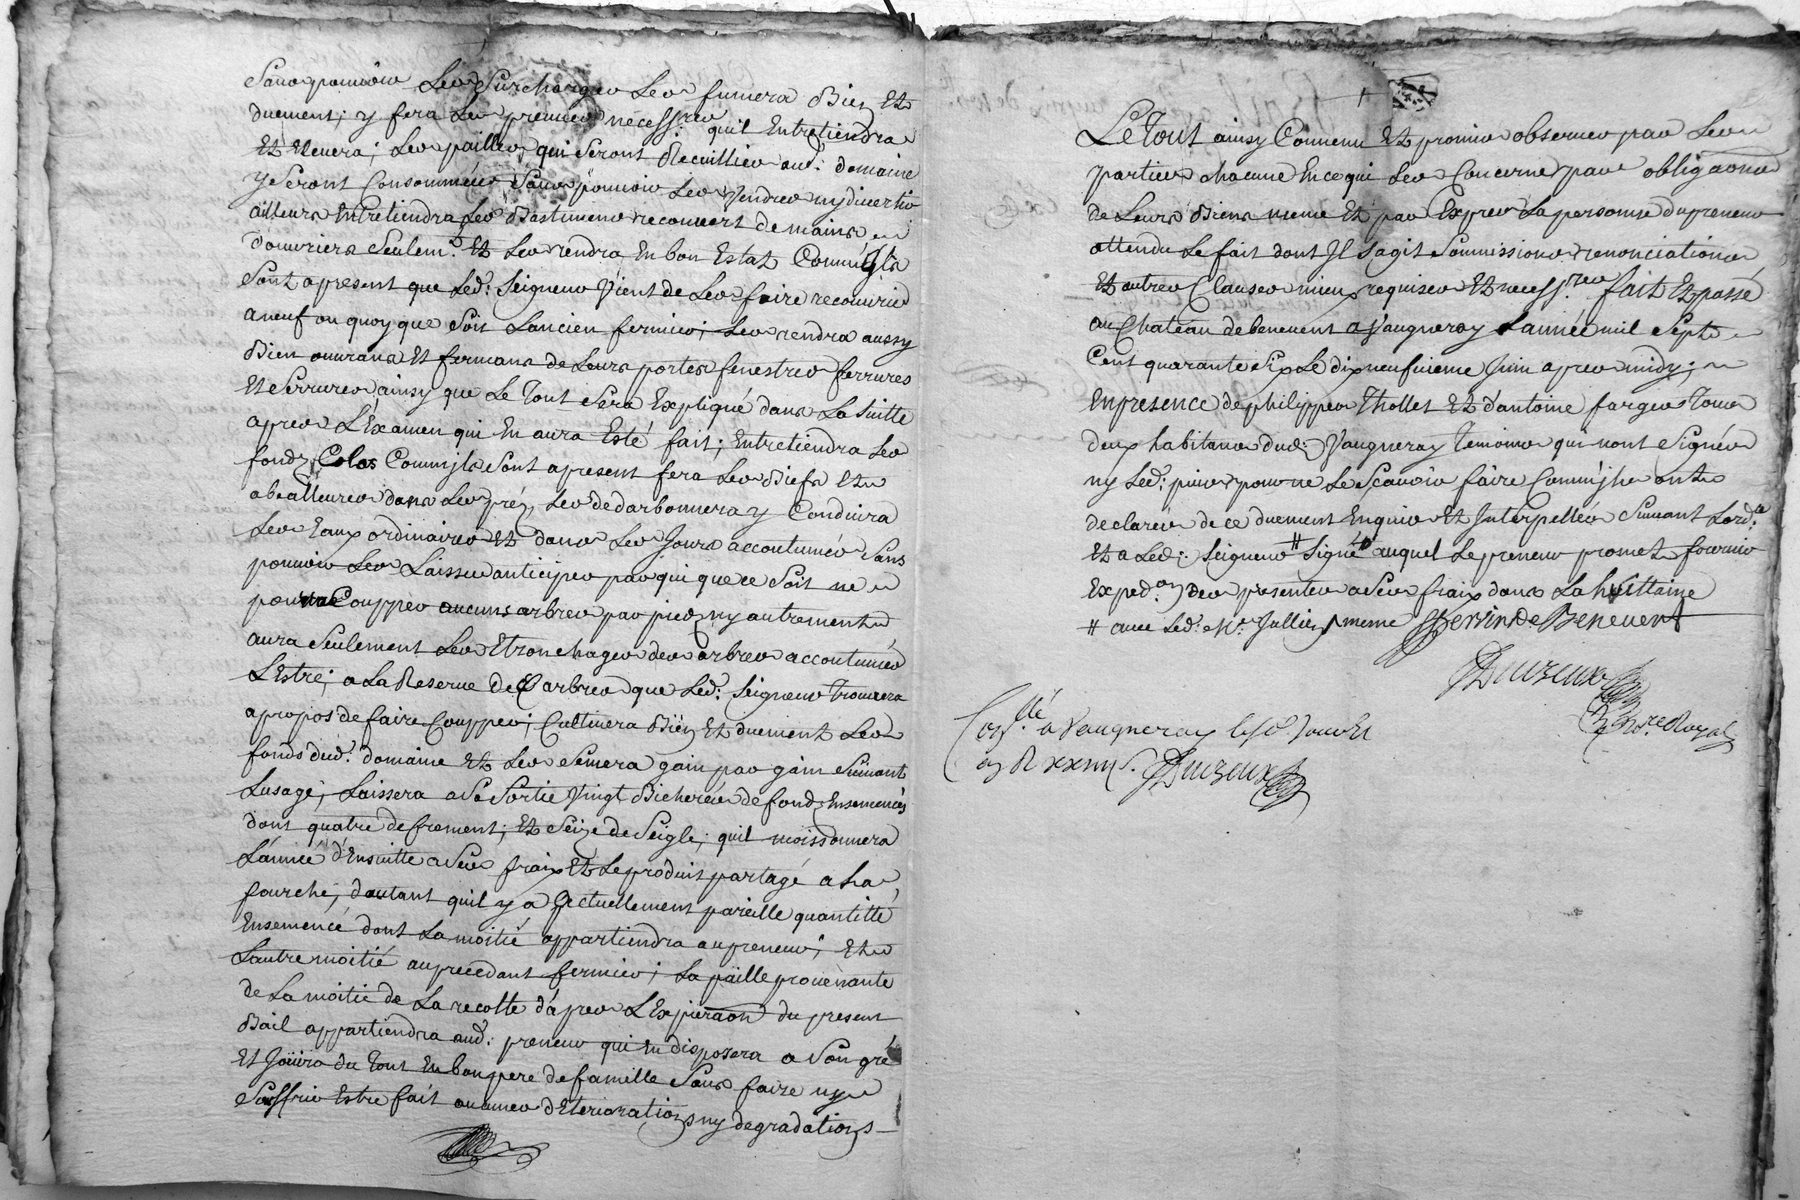 Sans pouvoir les Surcharger les fumera Bien Et
duement; y fera les premier necessres quil Entretiendra
Et Elevera; les pailles qui seront Recuillies aud: domaine
y Seront Consommées, Sans pouvoir les Vendre ny divertir
ailleurs Entretiendra les Bastimens recouvert de mains
d'ouvriers Seulemt. Et les rendra En bon Estat Comm'ils
Sont apresent que led: Seigneur Vient de les faire recouvrir
aneuf ou quoy que Soit Lancien fermier; les rendra aussy
Bien ouvrans Et fermans de leurs portes fenestres ferrures
Et Serrures ainsy que le Tout Sera Expliqué dans La Suitte
apres L'Examen qui En aura Esté fait; Entretiendra les
fondz Clos Comm'ils Sont apresent fera les Biefs Et
abealleures dans les préz, les dedarbonnera y Conduira
les Eaux ordinaires Et dans les Jours accoutumés Sans
pouvoir les Laisser anticiper par qui que ce Soit ne
pourra Coupper aucuns arbres par pied ny autrement
aura Seulement les Etronchages des arbres accoutumés
L'Estre; a La Reserve des arbres que led: Seigneur trouvera
apropos de faire Coupper; Cultivera Bien Et duement les
fonds dud: domaine Et les Semera gain par gain Suivant
Lusage; Laissera a Sa Sortie Vingt Bicherées de fondz Ensemencés
dont quatre de froment; Et Seize de Seigle; quil moissonnera
L'année d'Ensuitte a Ses fraix Et Le produit partagé a La
fourche; d'autant quil y a Actuellement pareille quantitté
Ensemencé dont La moitié appartiendra au preneur; Et
Lautre moitié au precedant fermier; La paille provenante
de La moitié de La recolte d'apres L'Expiraon du present
Bail appartiendra aud: preneur qui En disposera a Son gré
Et Joüira du Tout En bon pere de famille Sans faire ny
Souffrir Estre fait aucunes deteriorations ny degradations
Le Tout ainsy Convenu Et promis observer par Les
parties chacune En ce qui Les Concerne par obligaons
de Leurs Biens meme Et par Expres La personne du preneur
attendu Le fait dont Il sagit Soumissions renonciations
Et autres Clauses mieux requises Et necessres fait Et passé
au Chateau de benevent a Vaugneray Lannée mil Sept
Cent quarante Six Le dix neufvieme Juin apres midy;
En presence de philippes Thollet Et d'antoine farges Tous
deux habitans dud: Vaugneray Temoins qui nont Signés
ny led: pour ne le Scavoir faire Comm'ils ont
declarés de ce duement Enquis Et Interpellés Suivant Lord.ce
Et a Led: Seigneur # Signé auquel Le preneur promet fournir
Exped.on des presentes a Ses fraix dans La huittaine
# avec Led: Mr. Jullien meme Perrin de Benevent
Duzeux
No.re Royal
Con.llé a Vaugneray le Jour Et
Duzeux